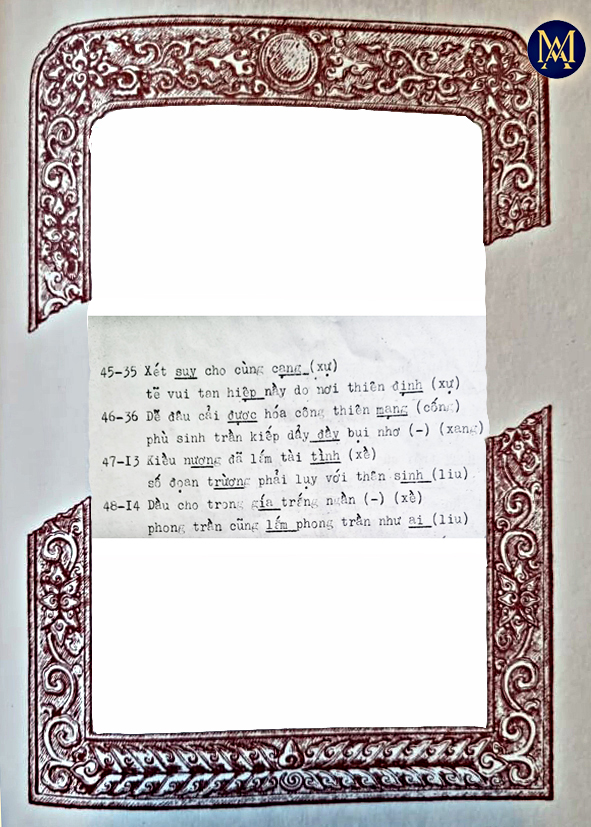 45-35 Xét suy cho cùng cạng (xự)
tẽ vui tan hiệp này do nơi thiên định (xự)
46-36 Dễ đâu cải được hóa công thiên mạng (cống)
phù sinh trần kiếp dẩy đầy bụi nhơ (-) (xang)
47-I3 Kiều nương đã lắm tài tình (xề)
số đọan trường phải lụy với thân sinh (liu)
48-I4 Dầu cho trong gía trắng ngần (-) (xề)
phong trần cũng lắm phong trần như ai (liu)
MA